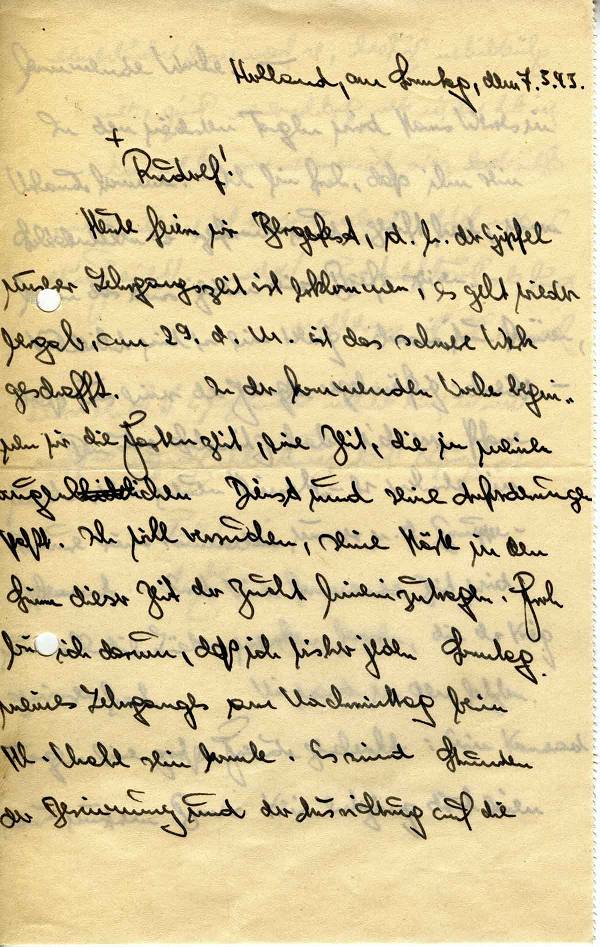 Holland, am Sonntag, dem 7.3.43.
+
Rudolf!
Heute feiern wir Bergefest, d. h. der Gipfel
unserer Lehrgangszeit ist erklommen, es geht wieder
bergab, am 29. d. M. ist das schwere Werk
geschafft. In der kommenden Woche begin-
nen wir die Fastenzeit, eine Zeit, die in meinen
augenblicklichen Dienst und seine Anforderungen
paßt. Ich will versuchen, seine Härte in den
Sinn dieser Zeit der Zucht hineinzutragen. Froh
bin ich darum, daß ich bisher jeden Sonntag
meines Lehrganges am Nachmittag beim
hl. Mahl sein konnte. Es sind Stunden
der Besinnung und der Ausrichtung auf die